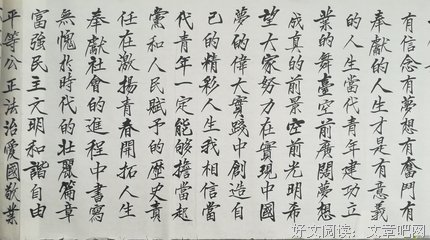 有信念有夢想有奮鬥有
奉獻的人生才是有意義
的人生當代青年建功立
業的舞臺空前廣闊夢想
成真的前景空前光明希
望大家努力在實現中國
夢的偉大實踐中創造自
己的精彩人生我相信當
代青年一定能夠擔當起
黨和人民賦予的歷史責
任在激揚青春開拓人生
奉獻社會的進程中書寫
無愧於時代的壯麗篇章
富強民主文明和諧自由
平等公正法治愛國敬業
好文阅读：文章吧网